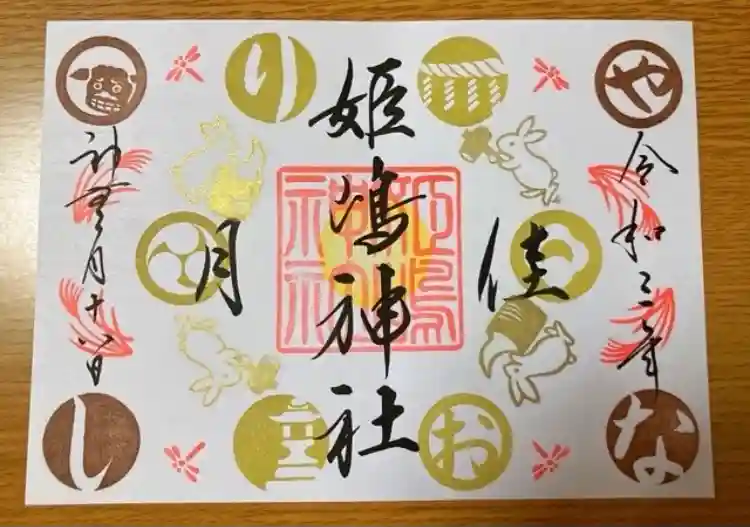 や
り
な
お
し
令和三年
佳
姫嶋神社
月
神無月十八日
姫嶋
神社